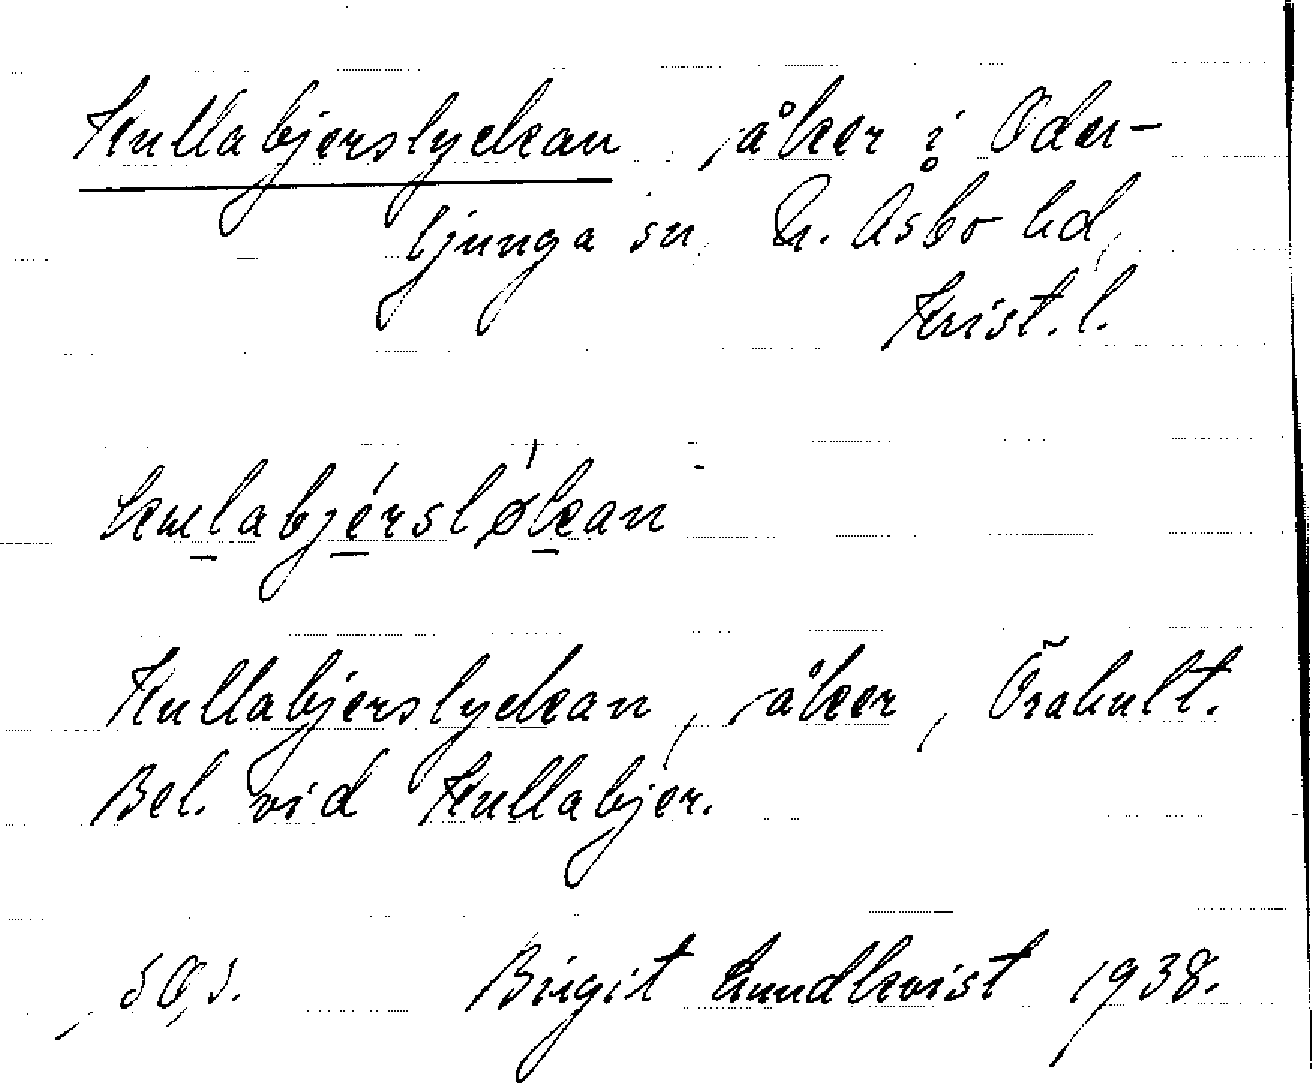 Kullabjerslyckan, åker i Oder-
ljunga sn, N. Åsbo hd,
Krist. l.
kɯlabjérsløkan
Kullabjerslyckan, åker, Örahult.
Bel. vid Kullabjer.
Birgit Lundkvist 1938.